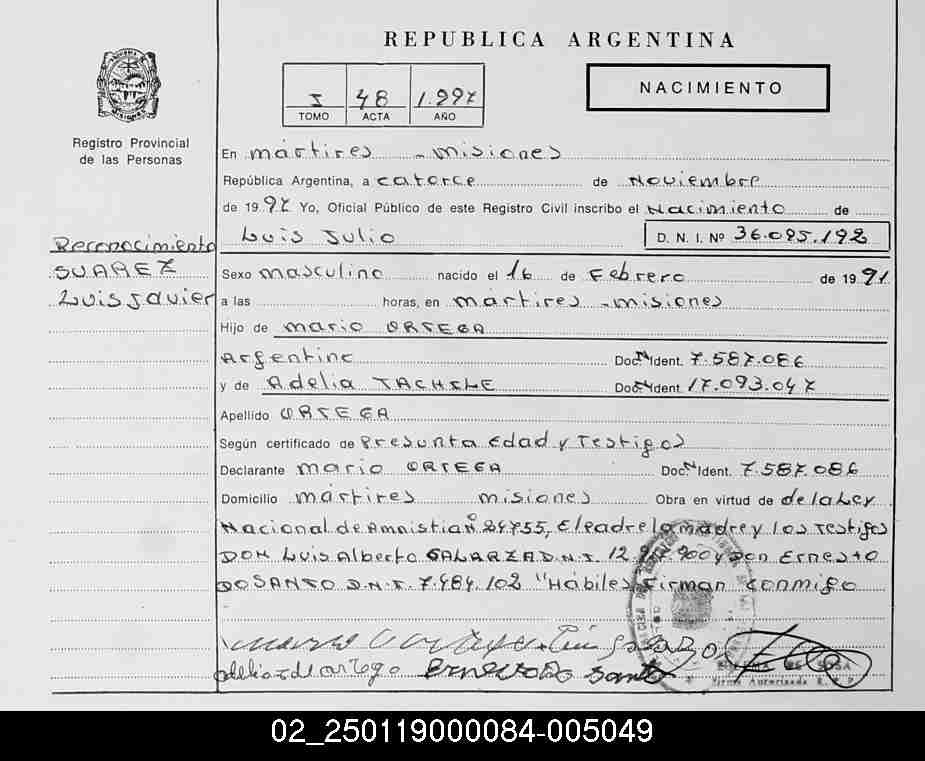 REPUBLICA ARGENTINA
NACIMIENTO
I 48 1.997
TOMO ACTA AÑO
Registro Provincial
de las Personas
En mártires - misiones
República Argentina, a catorce de Noviembre
de 1997 Yo, Oficial Público de este Registro Civil inscribo el Nacimiento de
Luis Julio D. N. I. Nº 36.095.192
Reconocimiento
SUAREZ
Luis Javier
Sexo masculino nacido el 16 de Febrero de 1991
a las horas, en mártires - misiones
Hijo de mario ORTEGA
Argentino Doc. Ident. 7.587.086
y de Adelia Doc. Ident. 17.093.047
Apellido ORTEGA
Según certificado de Presunta Edad y Testigos
Declarante mario ORTEGA Doc. Ident. 7.587.086
Domicilio mártires misiones Obra en virtud de de la Ley
Nacional de Amnistia nº 24755, El padre la madre y los Testigos
DON Luis Alberto GALARZA D.N.I. y Don Ernesto
DO SANTO D.N.I. 7.484.102 "Hábiles Firman conmigo
Ernesto Do Santo
Firma Autorizada R. P. P.
02_250119000084-005049